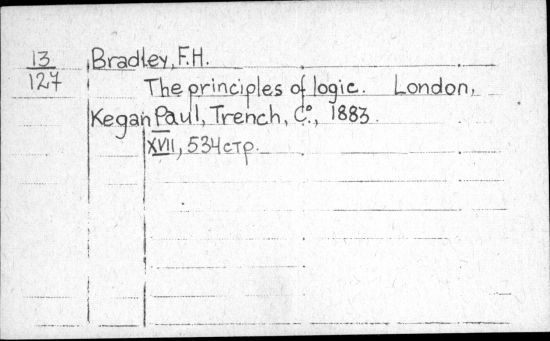 13 Bradley, F.H.
127 The principles of logic. London,
Kegan Paul, Trench, C°., 1883.
XVII, 534 стр.